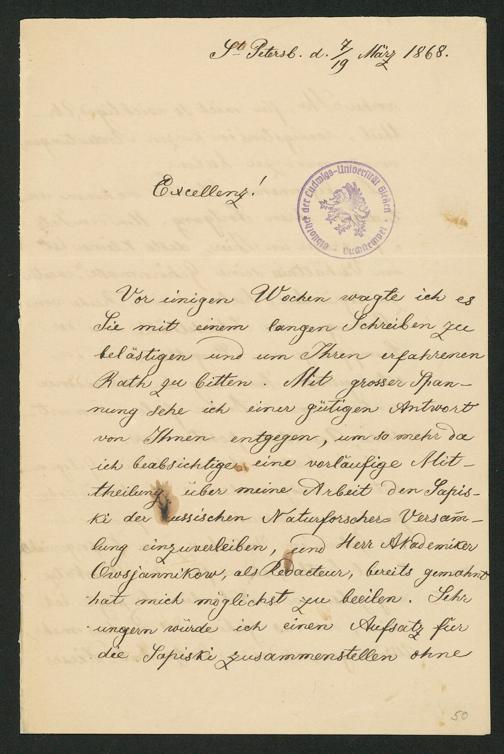 St Petersb. d. 7/19 März 1868.
Excellenz!
Bibliothek der Ludwigs-Universität Gießen
Buchstempel
Vor einigen Wochen wagte ich es
Sie mit einem langen Schreiben zu
belästigen und um Ihren erfahrenen
Rath zu bitten. Mit grosser Span-
nung sehe ich einer gütigen Antwort
von Ihnen entgegen, um so mehr da
ich beabsichtige, eine vorläufige Mit-
theilung über meine Arbeit den Sapis-
ki der Russischen Naturforscher-Versam̄-
lung einzuverleiben, und Herr Akademiker
Owsjannikow, als Redacteur, bereits gemahnt
hat mich möglichst zu beeilen. Sehr
ungern würde ich einen Aufsatz für
die Sapiski zusammenstellen ohne
50